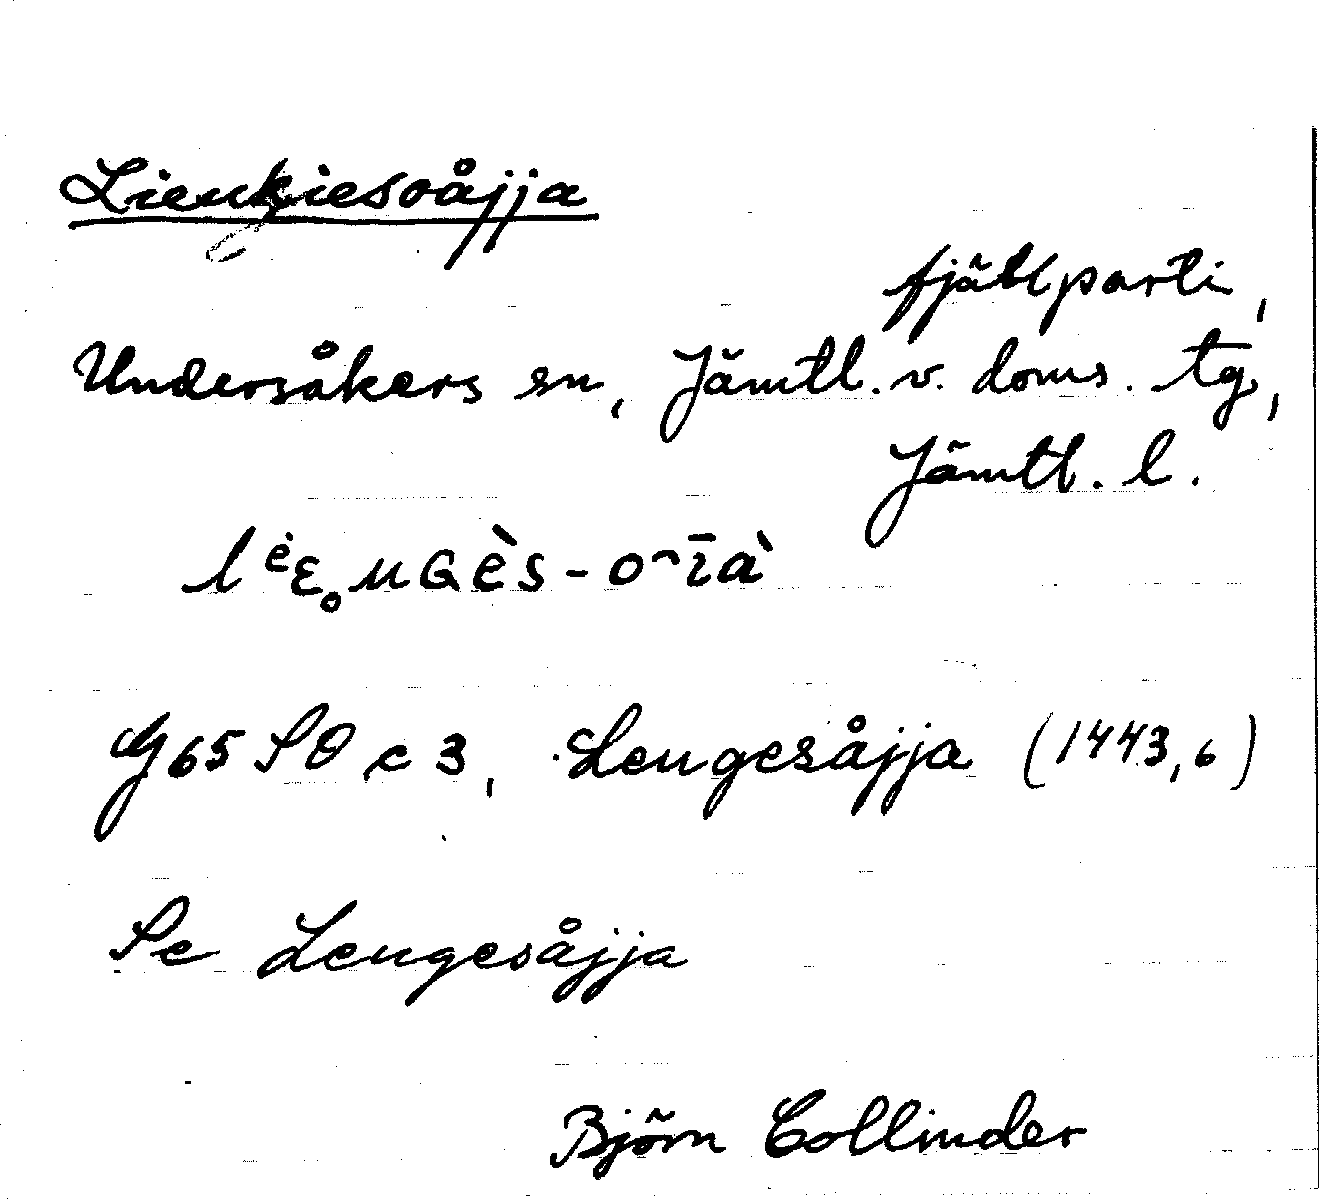 Lienkiesoåjja
fjällparti,
Undersåkers sn, Jämtl. v. doms. tg,
Jämtl. l.
G65 SO c 3, Lengesåjja (1443,6)
Se Lengesåjja
Björn Collinder